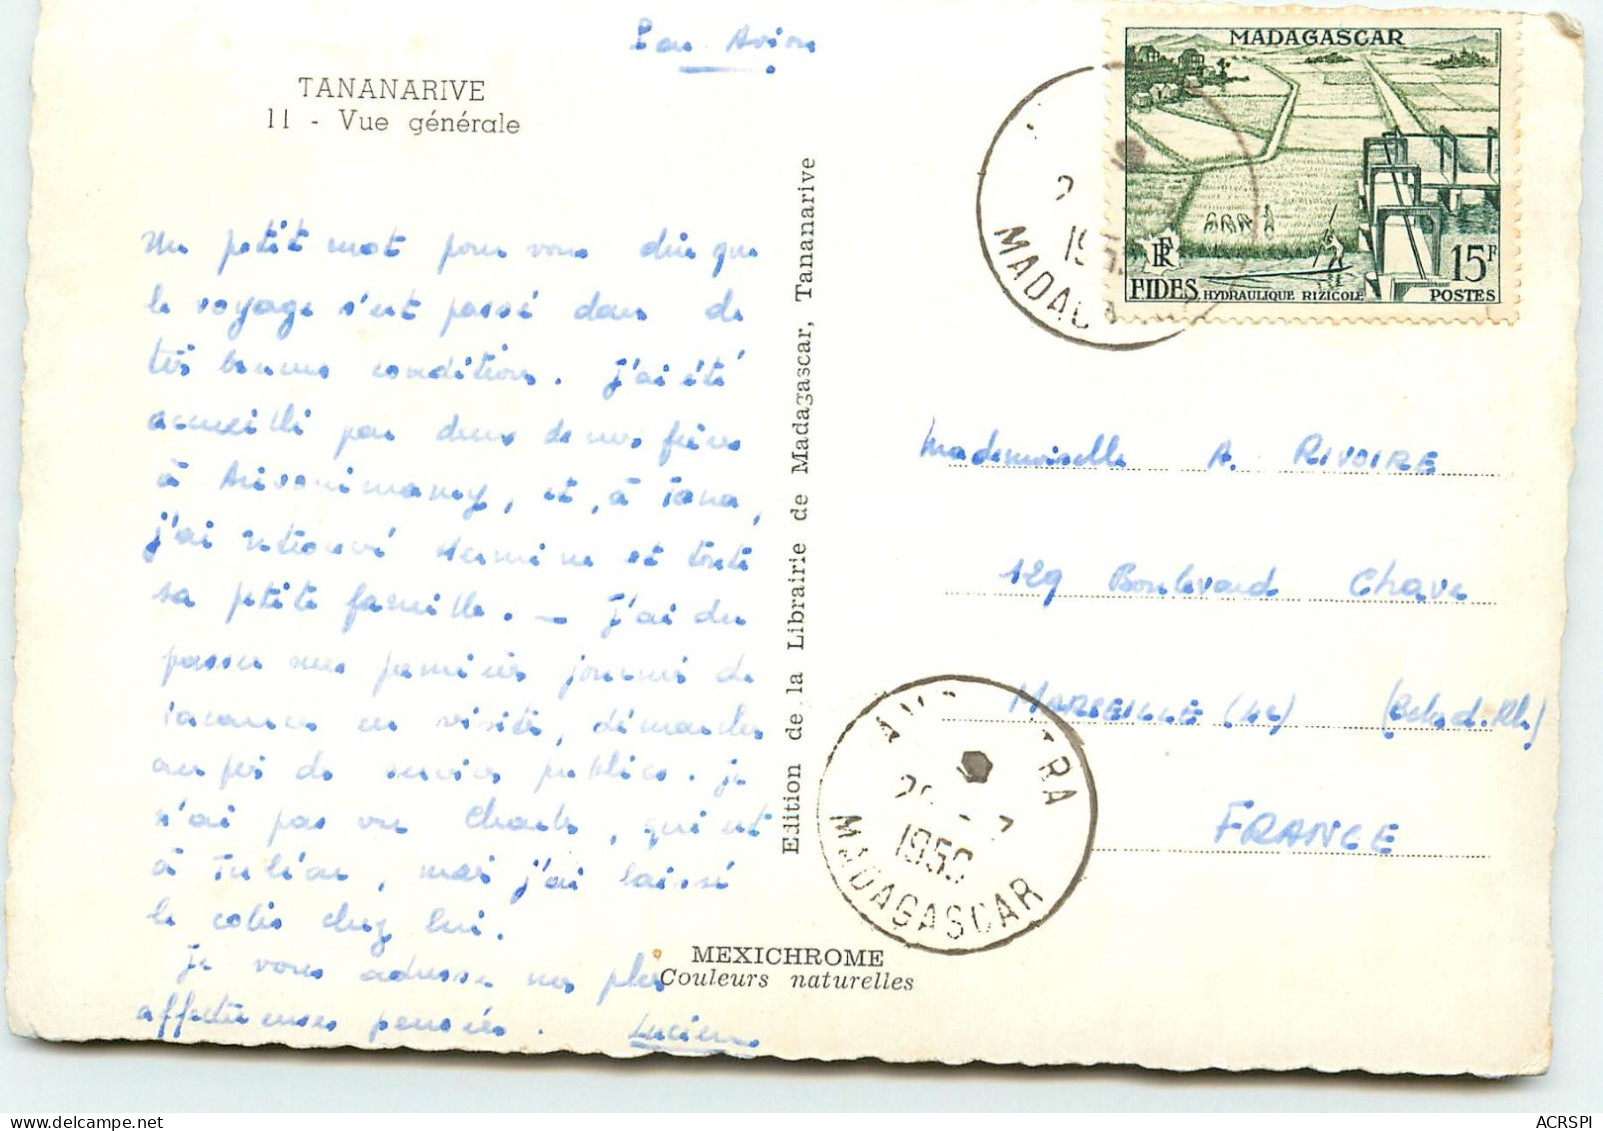 Par Avion
TANANARIVE
11 - Vue générale
Un petit mot pour vous dire que
le voyage s'est passé dans de
très bonnes conditions. J'ai été
accueilli par deux de nos frères
à Arivonimamy, et, à Tana,
j'ai retrouvé Hermine et toute
sa petite famille. — J'ai du
passer mes premières journées de
vacances en visites, démarches
auprès de services publics. Je
n'ai pas vu Charles, qui est
à Tuléar, mais j'ai laissé
le colis chez lui.
Je vous adresse nos plus
affectueuses pensées. Lucien
Edition de la Librairie de Madagascar, Tananarive
MEXICHROME
Couleurs naturelles
MADAGASCAR
RF
15F
FIDES HYDRAULIQUE RIZICOLE POSTES
MADAGA
MADAGASCAR
Mademoiselle A. RIVOIRE
129 Boulevard Chave
MARSEILLE (4e) (Bches d. Rh.)
FRANCE
ACRSPI